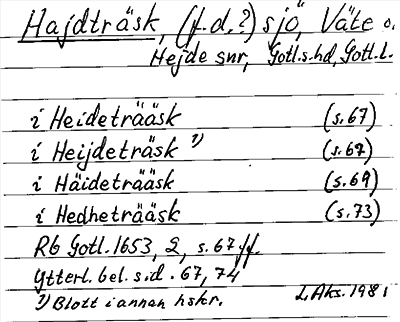 Hajdträsk, (f.d.?) sjö, Väte o.
Hejde snr, Gotl.s.hd, Gotl.l.
i Heideträäsk (s.67)
i Heijdeträsk 1) (s.67)
i Häideträäsk (s.69)
i Hedheträäsk (s.73)
RG Gotl. 1653, 2, s. 67 ff.
Ytterl. bel. s.d. 67, 74
1) Blott i annan hskr. L. Aks. 1981